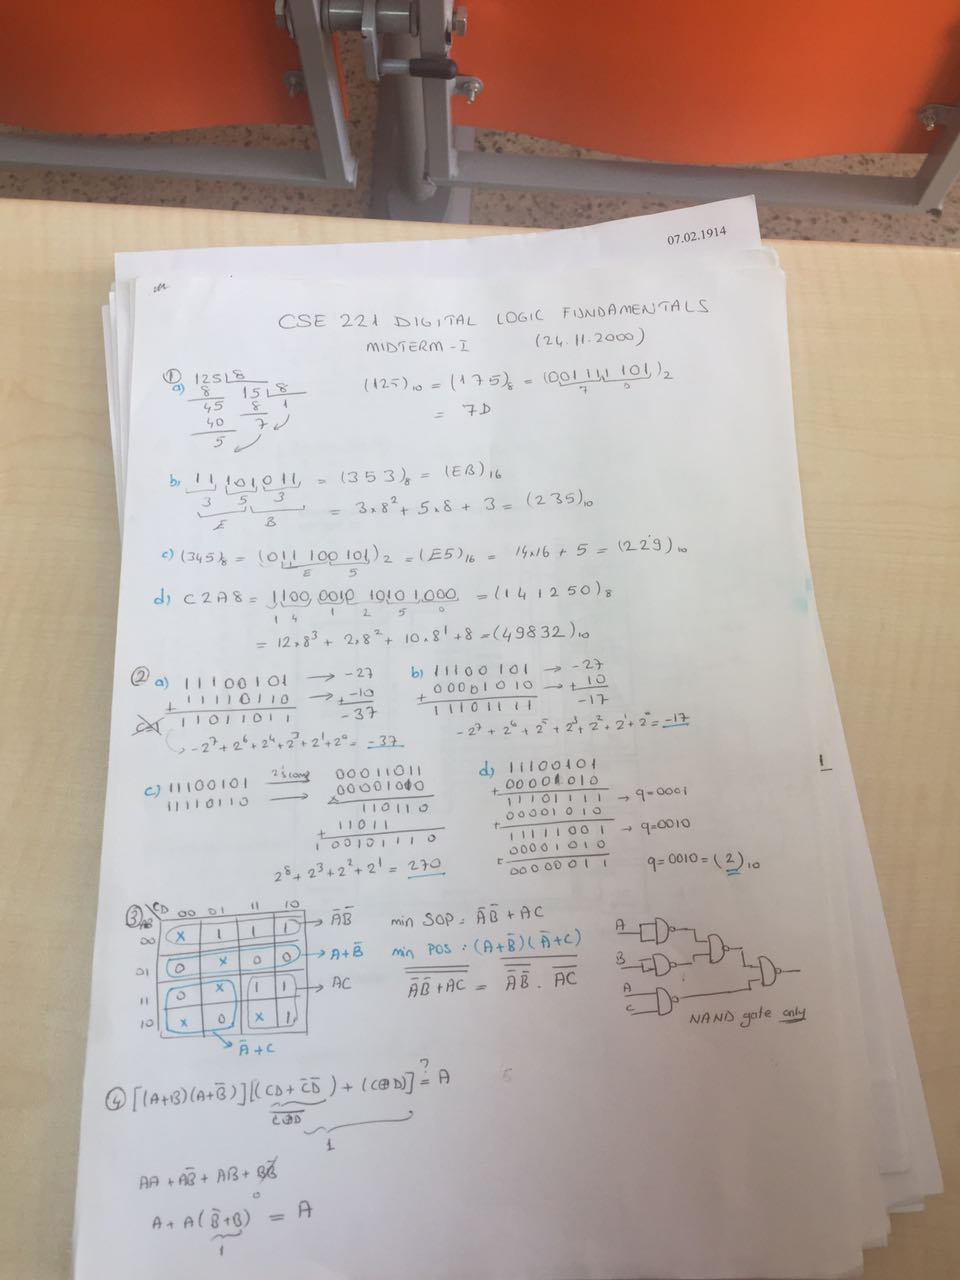 07.02.1914
CSE 221 DIGITAL LOGIC FUNDAMENTALS
MIDTERM - I (24.11.2000)
① a) 125 | 8
8 15 | 8
45 8 1
40 7
5
(125)₁₀ = (175)₈ = (001 111 101)₂
7 D
= 7D
b) 11 101 011 = (353)₈ = (EB)₁₆
3 5 3
E B
= 3×8² + 5×8 + 3 = (235)₁₀
c) (345)₈ = (011 100 101)₂ = (E5)₁₆ = 14×16 + 5 = (229)₁₀
E 5
d) C2A8 = 1100 0010 1010 1000 = (141250)₈
1 4 1 2 5 0
= 12×8³ + 2×8² + 10×8¹ + 8 = (49832)₁₀
② a) 11100101 → -27
+ 11110110 → + -10
11011011 -37
-2⁷ + 2⁶ + 2⁴ + 2³ + 2¹ + 2⁰ = -37
b) 11100101 → -27
+ 00001010 → + 10
11101111 -17
-2⁷ + 2⁶ + 2⁵ + 2³ + 2² + 2¹ + 2⁰ = -17
c) 11100101 2's comp 00011011
11110110 → × 00001010
110110
+ 11011
1 0010 1110
2⁸ + 2³ + 2² + 2¹ = 270
d) 11100101
+ 00001010
11101111 → q=0001
+ 00001010
11111001 → q=0010
+ 00001010
00000011 q=0010 = (2)₁₀
1
③ CD
AB 00 01 11 10
00 x 1 1 1 → A̅B̅
01 0 x 0 0 → A+B̅
11 0 x 1 1 → AC
10 x 0 x 1
A̅+C
min SOP: A̅B̅ + AC
min POS: (A+B̅)(A̅+C)
A̅B̅ + AC = A̅B̅ . AC
A
B
A
C
NAND gate only
④ [(A+B)(A+B̅)][(CD + C̅D̅) + (C⊕D)] ?= A
C⊕D
1
AA + AB̅ + AB + BB̅
0
A + A(B̅+B) = A
1